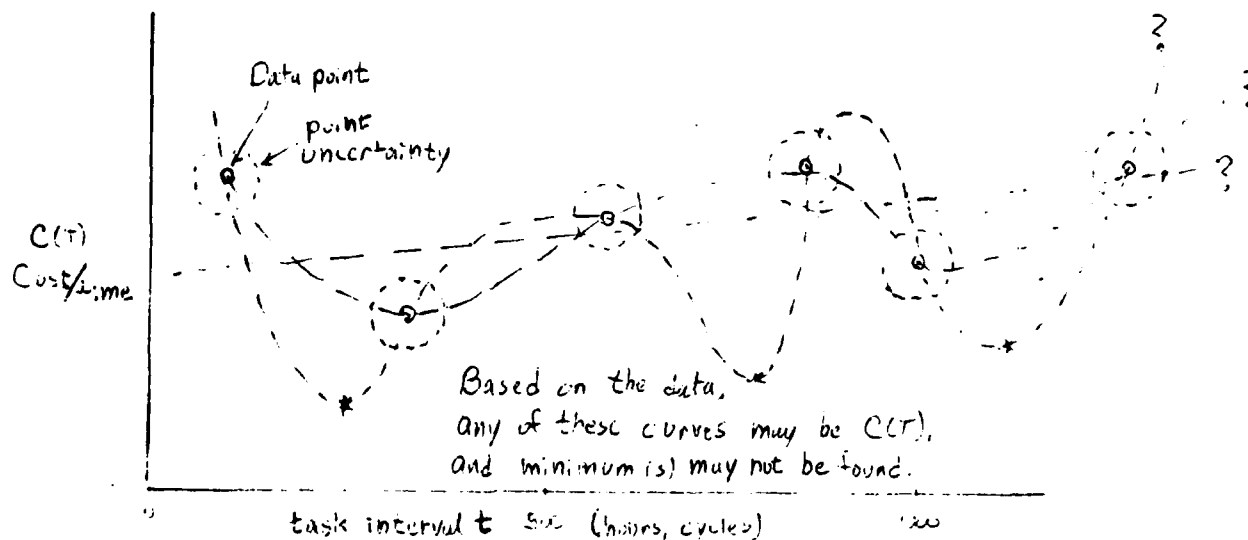 ?
?
Data point
point
uncertainty
?
C(T)
Cost/time
Based on the data,
any of these curves may be C(T),
and minimum(s) may not be found.
0
task interval t (hours, cycles)